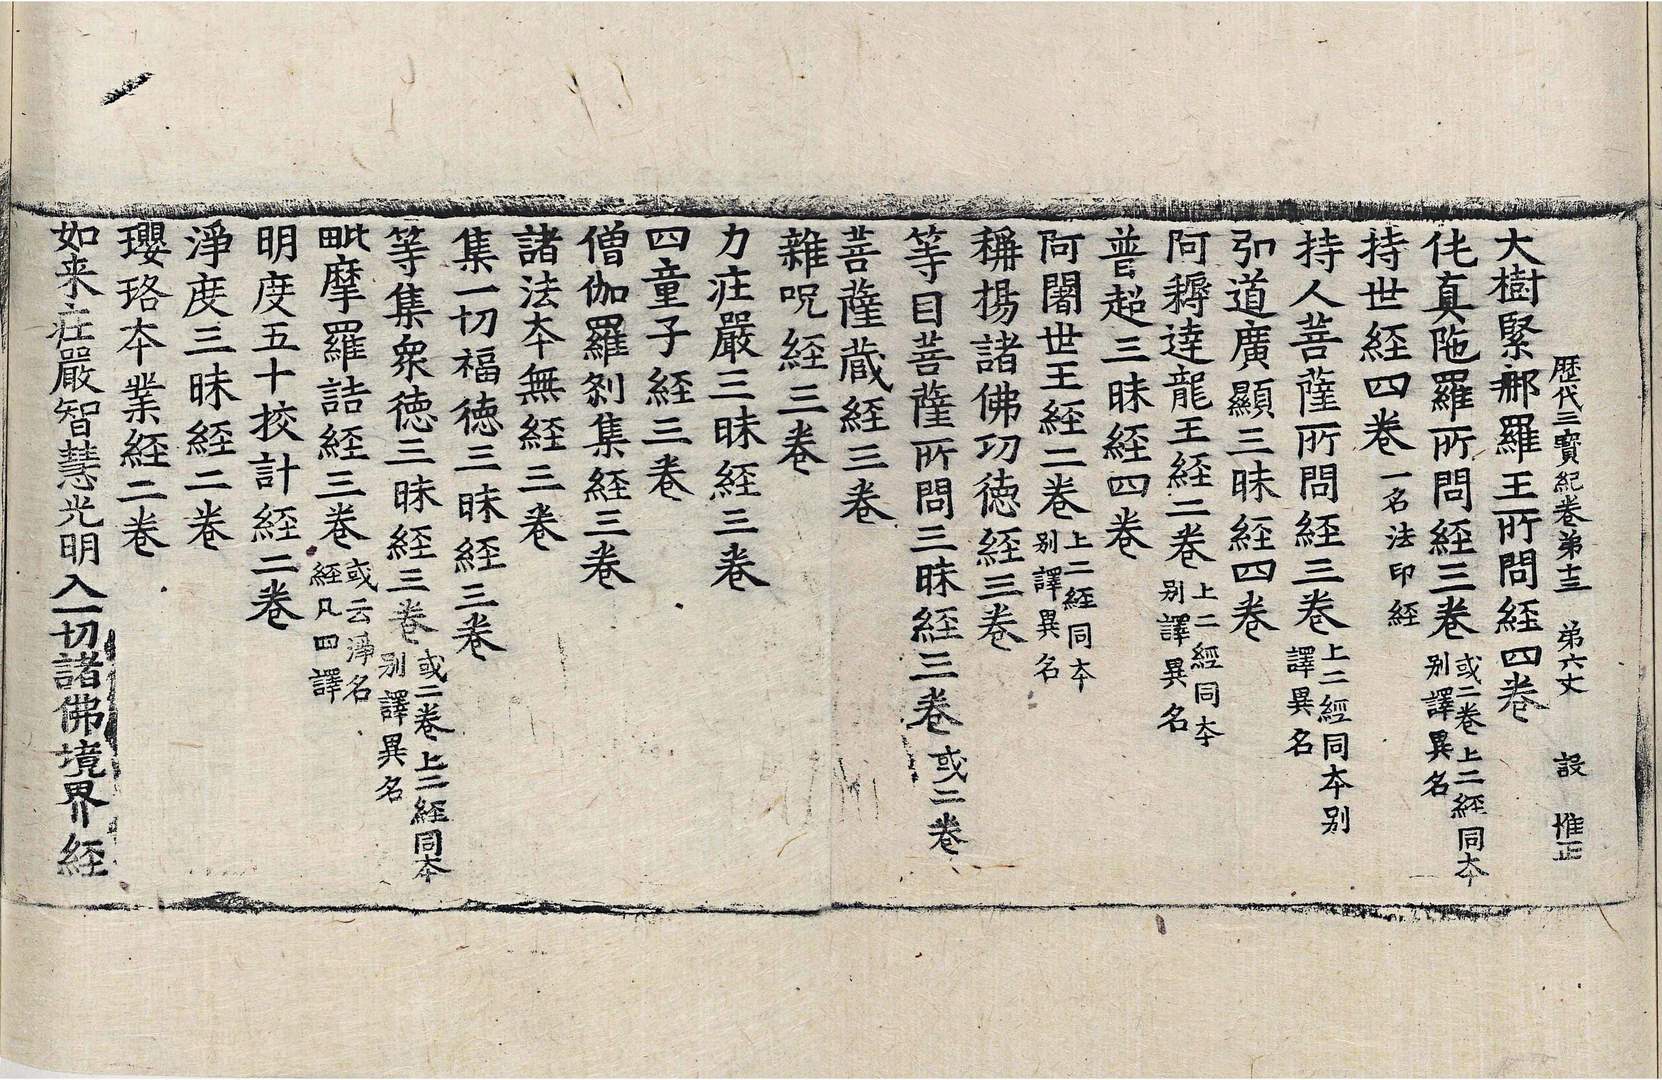 歷代三寶紀卷第十三 第六丈 設 惟正
大樹緊𨚗羅王所問經四卷
伅真陁羅所問經三卷 或二卷上二經同本別譯異名
持世經四卷 一名法印經
持人菩薩所問經三卷 上二經同本別譯異名
引道廣顯三昧經四卷
阿耨達龍王經二卷 上二經同本別譯異名
普超三昧經四卷
阿闍世王經二卷 上二經同本別譯異名
稱揚諸佛功德經三卷
等目菩薩所問三昧經三卷 或二卷
菩薩藏經三卷
雜呪經三卷
力莊嚴三昧經三卷
四童子經三卷
僧伽羅剎集經三卷
諸法本無經三卷
集一切福德三昧經三卷
等集衆德三昧經三卷 或二卷上二經同本別譯異名
毗摩羅詰經三卷 或云淨名經凡四譯
明度五十挍計經二卷
淨度三昧經二卷
瓔珞本業經二卷
如来莊嚴智慧光明入一切諸佛境界經